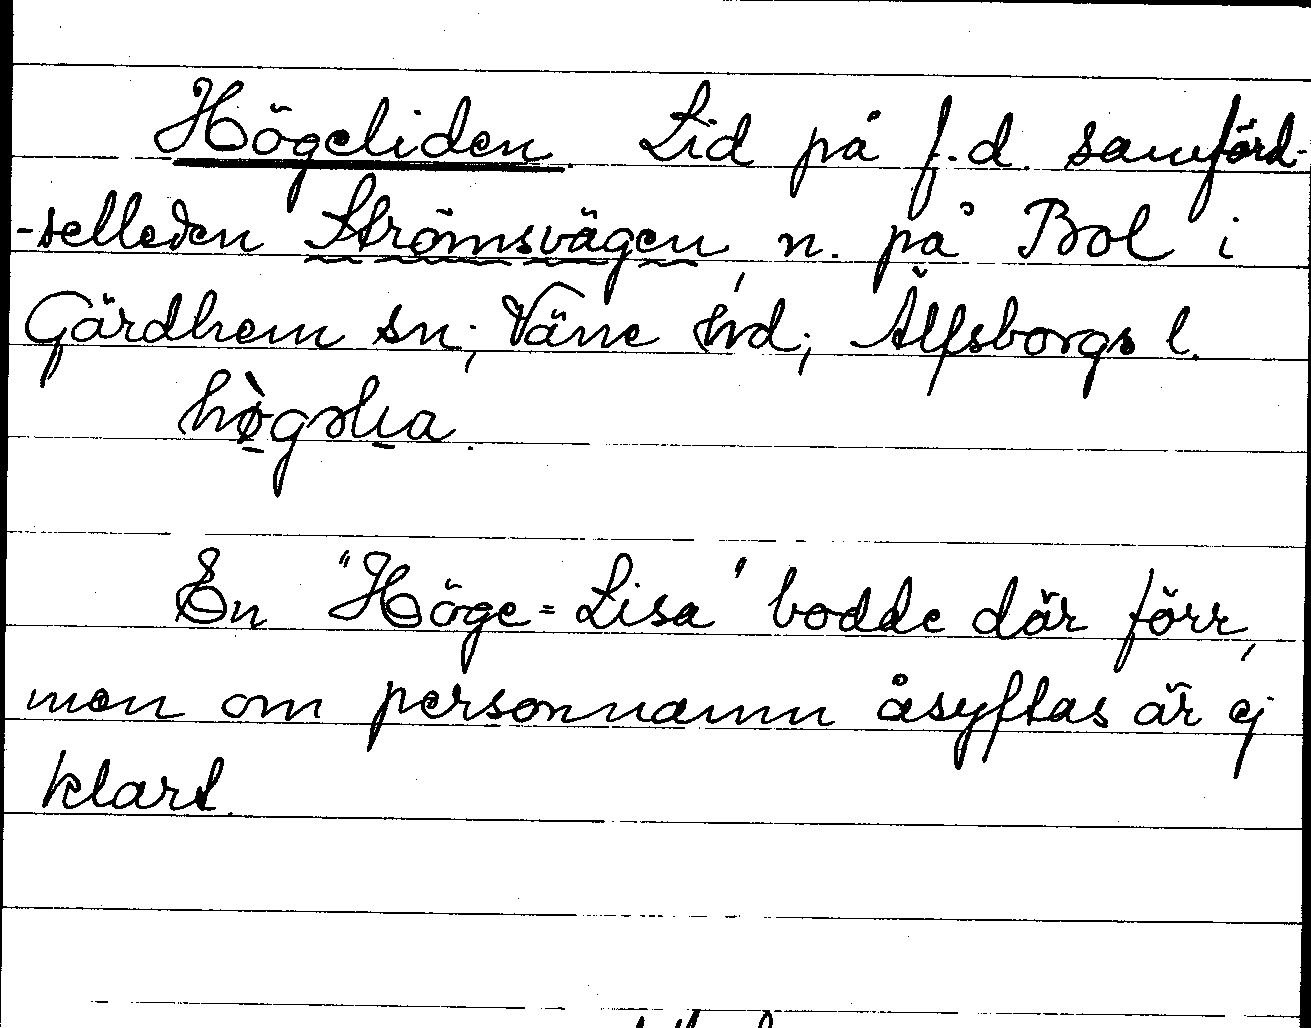 Högeliden. Lid på f.d. samfärd-
-selleden Strömsvägen, n. på Bol i
Gärdhem sn; Väne hd; Älfsborgs l.
En "Höge-Lisa" bodde där förr,
men om personnamn åsyftas är ej
klart.